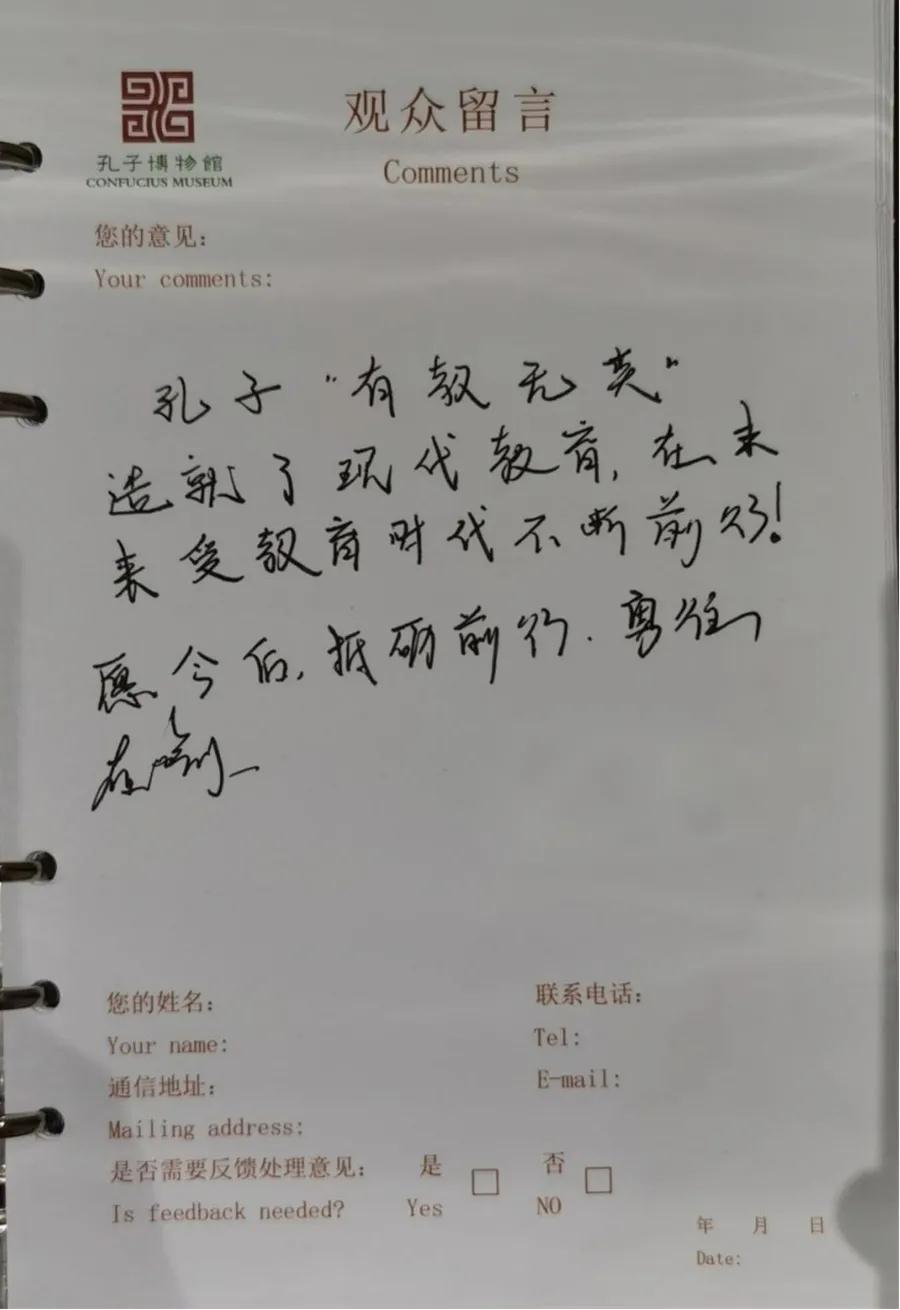 孔子博物館
CONFUCIUS MUSEUM
观众留言
Comments
您的意见：
Your comments:
孔子“有教无类”
造就了现代教育，在未
来受教育时代不断前行！
愿今后，抵砺前行．勇往
您的姓名：
Your name:
联系电话：
Tel:
通信地址：
E-mail:
Mailing address:
是否需要反馈处理意见： 是 □ 否 □
Is feedback needed? Yes NO
年 月 日
Date: